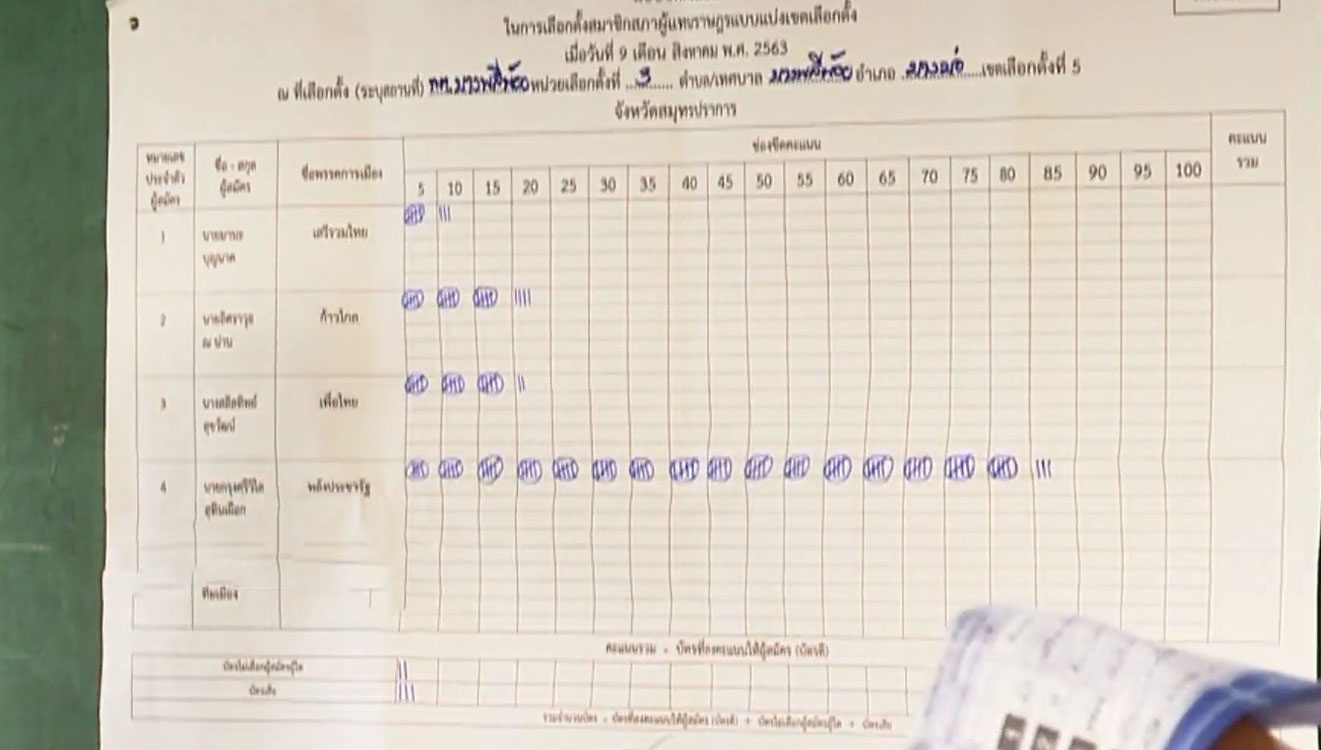 ในการเลือกตั้งสมาชิกสภาผู้แทนราษฎรแบบแบ่งเขตเลือกตั้ง
เมื่อวันที่ 9 เดือน สิงหาคม พ.ศ. 2563
ณ ที่เลือกตั้ง (ระบุสถานที่) หน่วยเลือกตั้งที่ 3 ตำบล/เทศบาล บางพลีน้อย อำเภอ บางบ่อ เขตเลือกตั้งที่ 5
จังหวัดสมุทรปราการ
หมายเลขประจำตัวผู้สมัคร ชื่อ - สกุล ผู้สมัคร ชื่อพรรคการเมือง ช่องขีดคะแนน คะแนนรวม
5 10 15 20 25 30 35 40 45 50 55 60 65 70 75 80 85 90 95 100
1 บุญนาค เสรีรวมไทย
2 ณ น่าน ก้าวไกล
3 เพื่อไทย
4 นายกรุงศรีวิไล สุทินเผือก พลังประชารัฐ
คะแนนรวม = บัตรที่ลงคะแนนให้ผู้สมัคร (บัตรดี)
บัตรไม่เลือกผู้สมัครผู้ใด
บัตรเสีย
รวมจำนวนบัตร = บัตรที่ลงคะแนนให้ผู้สมัคร (บัตรดี) + บัตรไม่เลือกผู้สมัครผู้ใด + บัตรเสีย